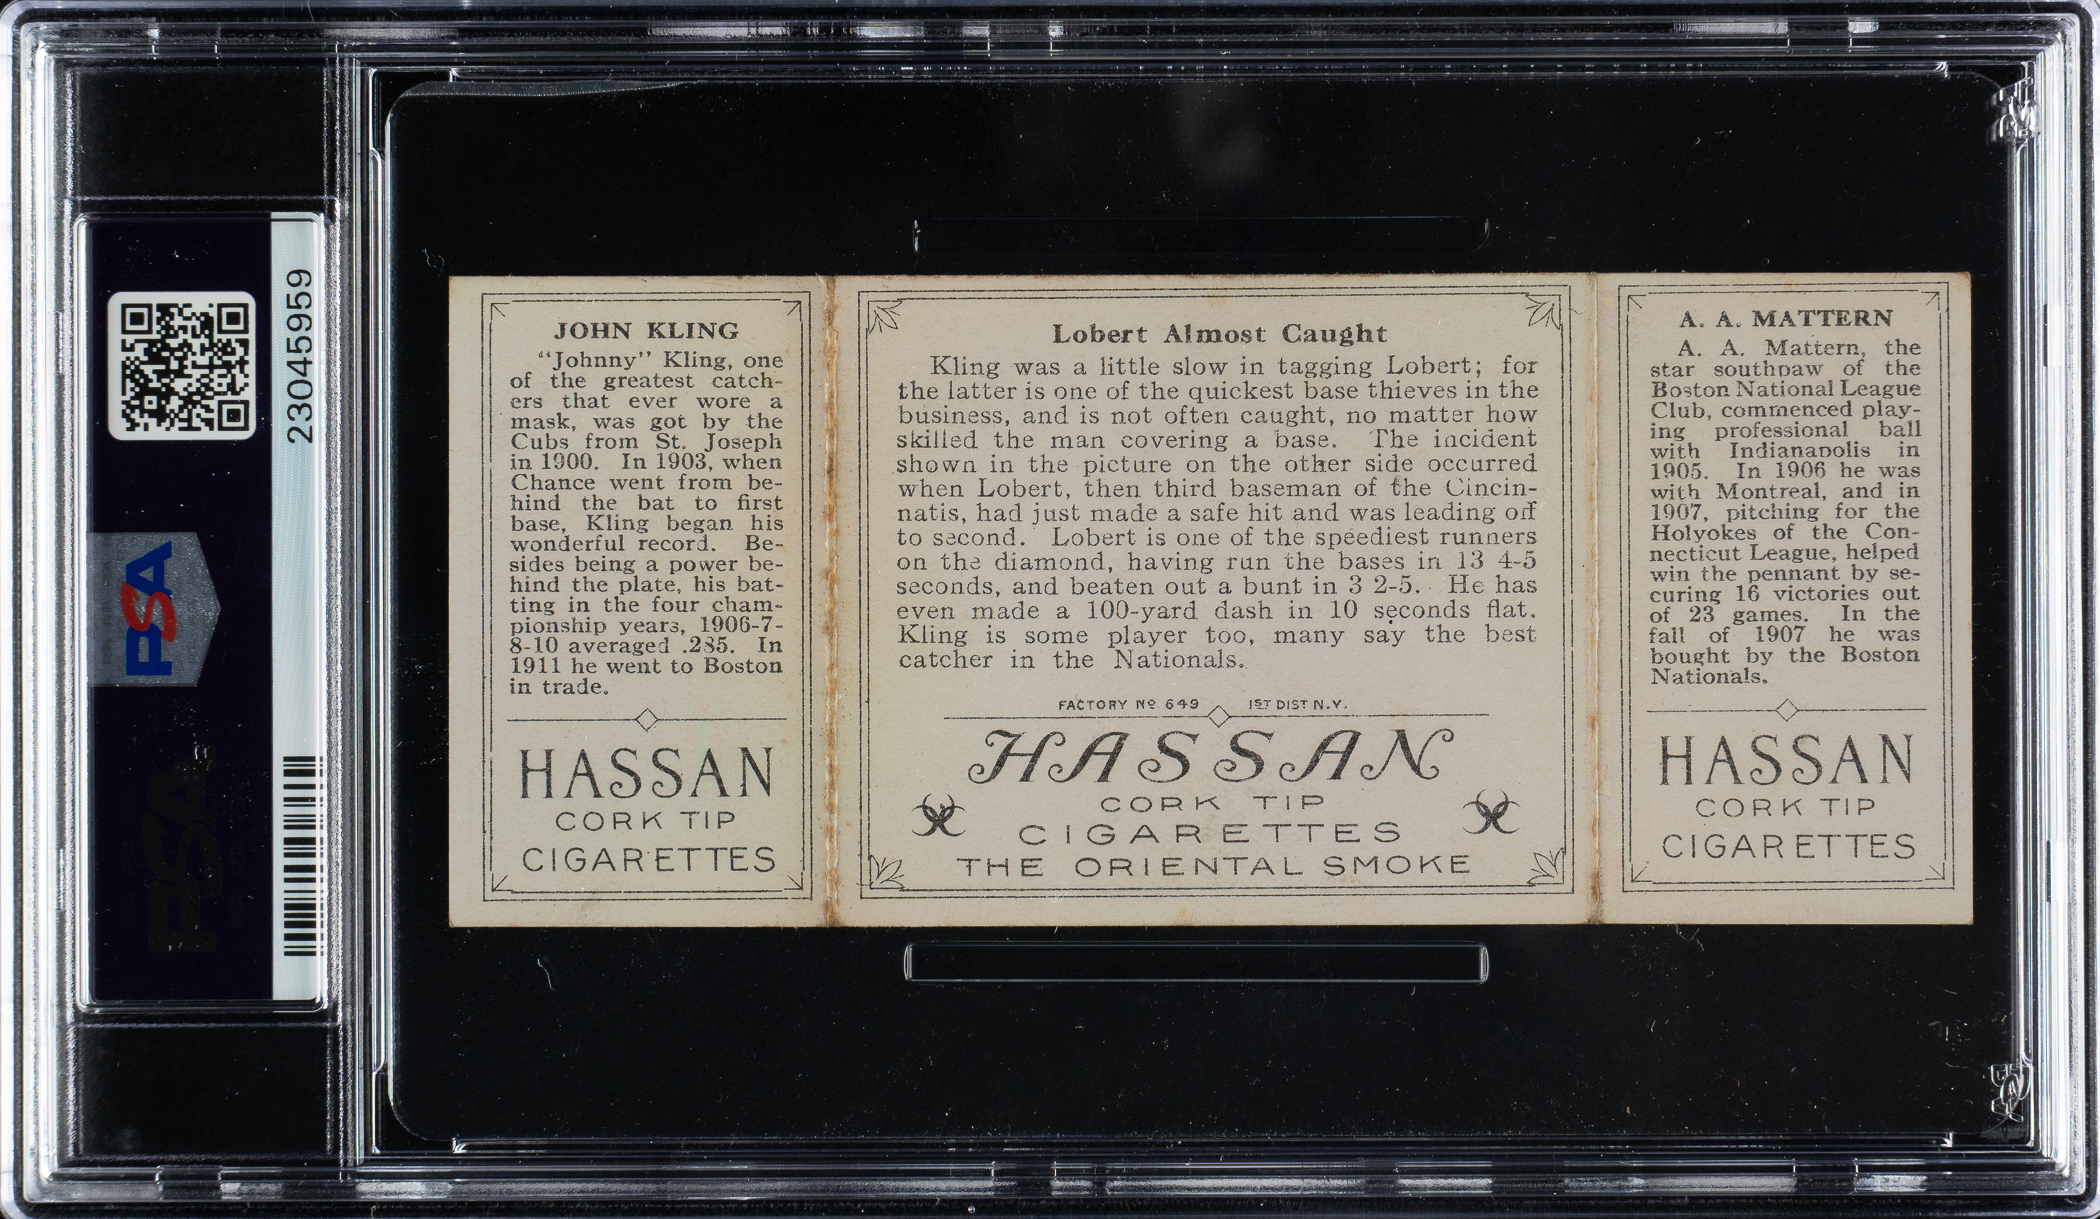 230459959
PSA
JOHN KLING
"Johnny" Kling, one
of the greatest catch-
ers that ever wore a
mask, was got by the
Cubs from St. Joseph
in 1900. In 1903, when
Chance went from be-
hind the bat to first
base, Kling began his
wonderful record. Be-
sides being a power be-
hind the plate, his bat-
ting in the four cham-
pionship years, 1906-7-
8-10 averaged .285. In
1911 he went to Boston
in trade.
HASSAN
CORK TIP
CIGARETTES
Lobert Almost Caught
Kling was a little slow in tagging Lobert; for
the latter is one of the quickest base thieves in the
business, and is not often caught, no matter how
skilled the man covering a base. The incident
shown in the picture on the other side occurred
when Lobert, then third baseman of the Cincin-
natis, had just made a safe hit and was leading off
to second. Lobert is one of the speediest runners
on the diamond, having run the bases in 13 4-5
seconds, and beaten out a bunt in 3 2-5. He has
even made a 100-yard dash in 10 seconds flat.
Kling is some player too, many say the best
catcher in the Nationals.
FACTORY No. 649 1ST DIST N.Y.
HASSAN
CORK TIP
CIGARETTES
THE ORIENTAL SMOKE
A. A. MATTERN
A. A. Mattern, the
star southpaw of the
Boston National League
Club, commenced play-
ing professional ball
with Indianapolis in
1905. In 1906 he was
with Montreal, and in
1907, pitching for the
Holyokes of the Con-
necticut League, helped
win the pennant by se-
curing 16 victories out
of 23 games. In the
fall of 1907 he was
bought by the Boston
Nationals.
HASSAN
CORK TIP
CIGARETTES